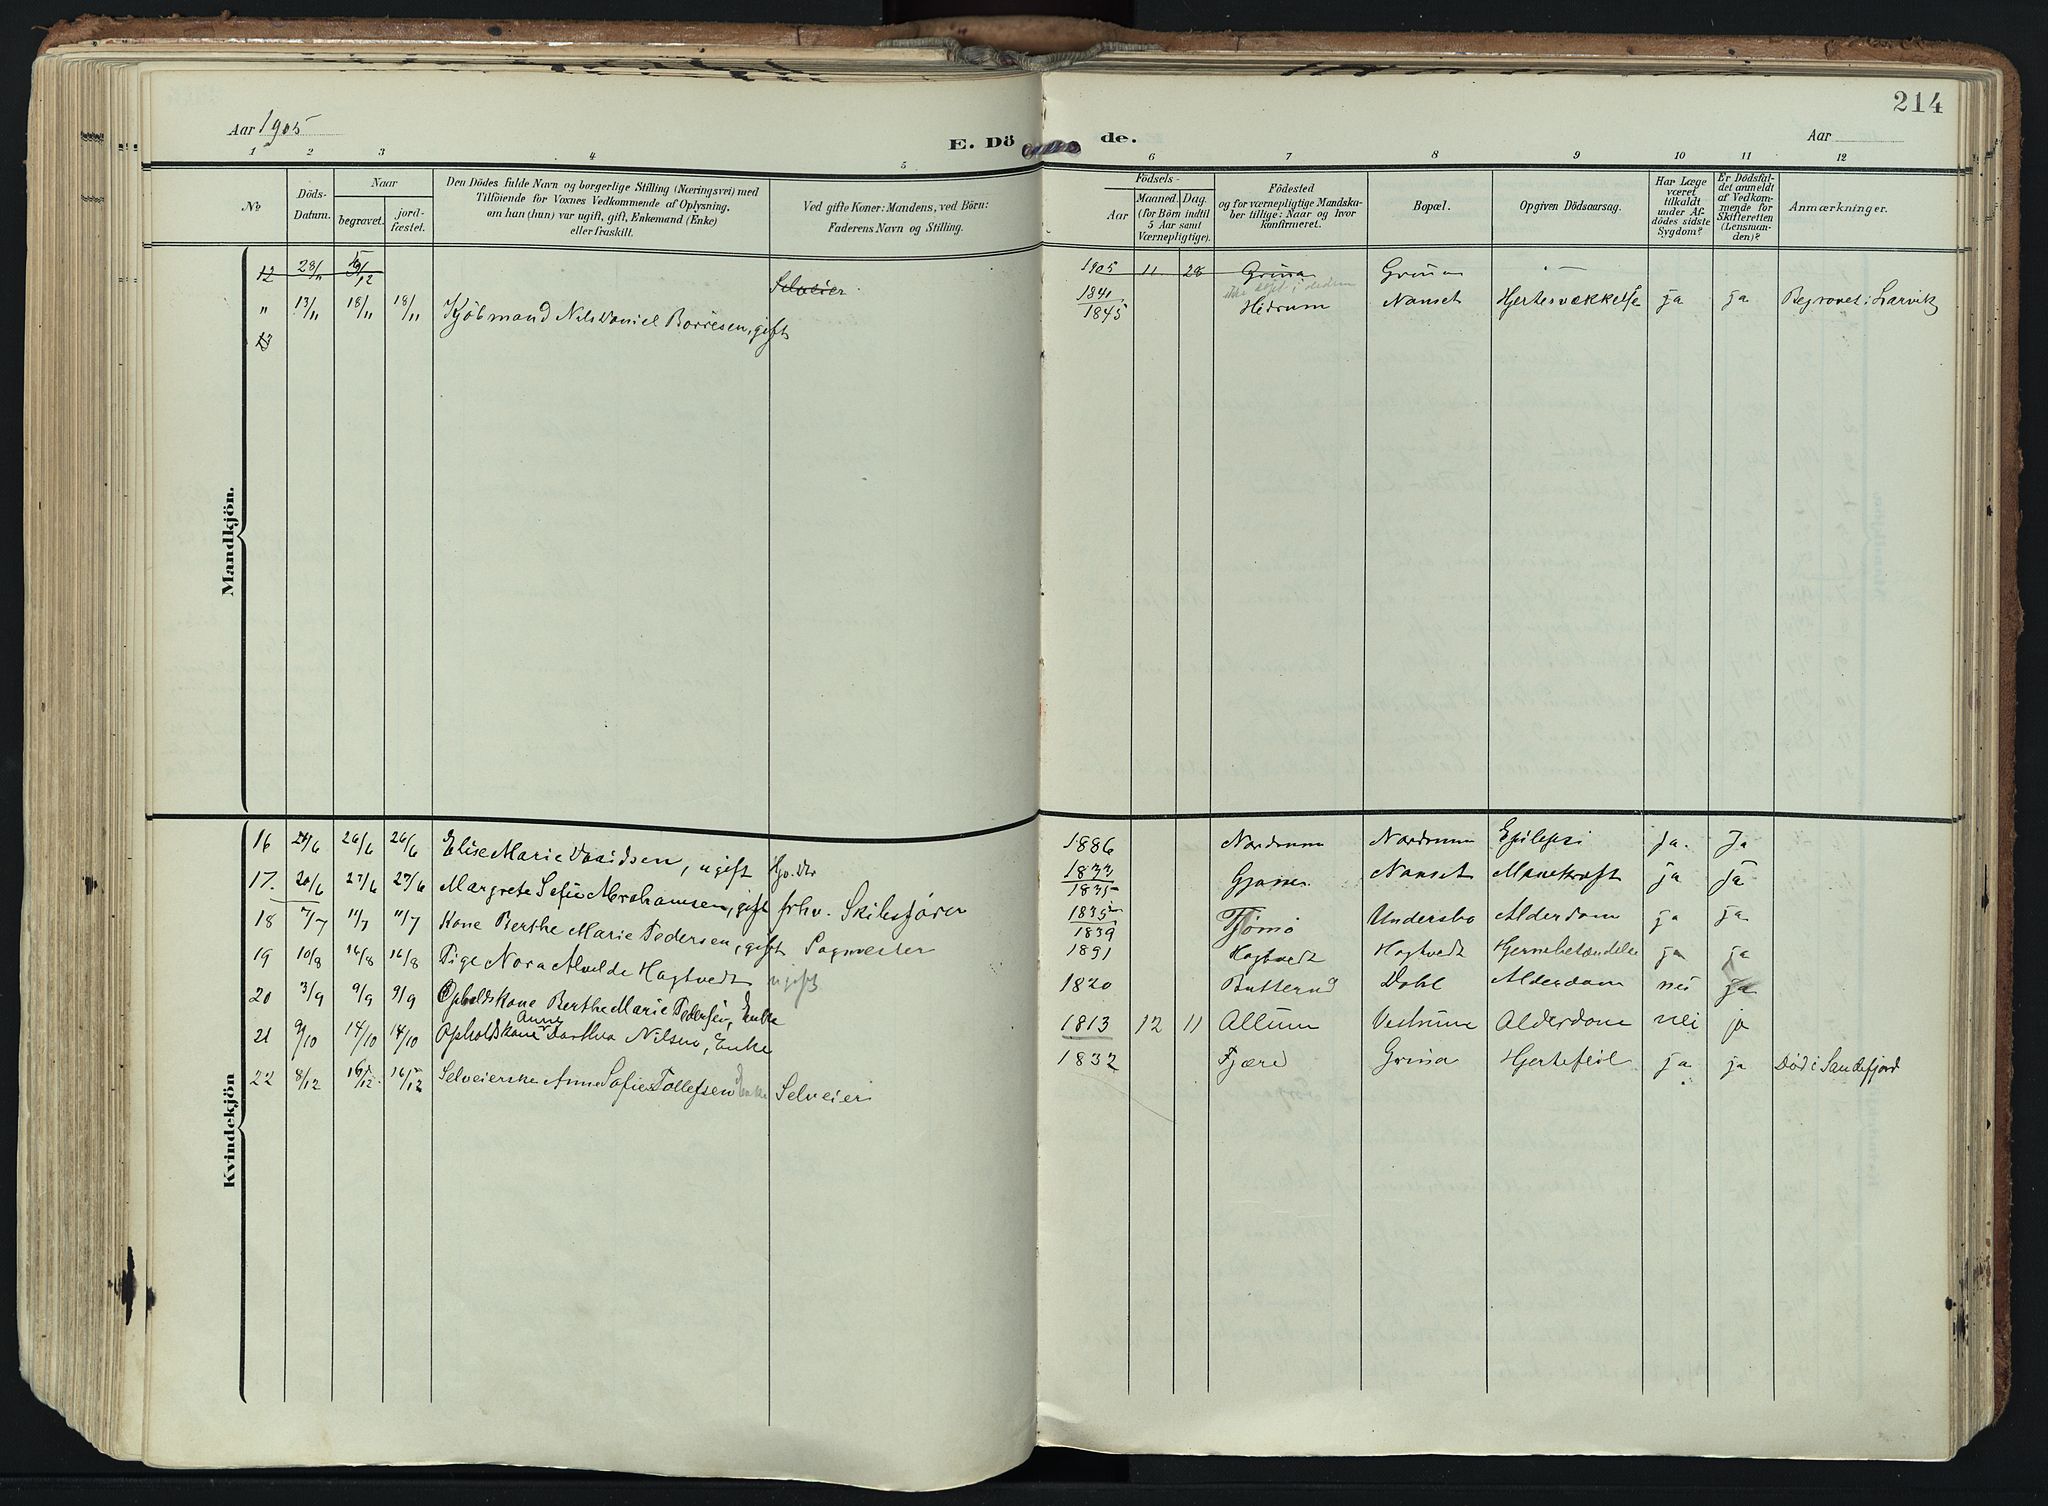 214
Aar 1905
E. Dö de.
Aar
1 2 3 4 5 6 7 8 9 10 11 12
No
Döds-Datum.
Naar
begravet.
jord-fæstet.
Den Dödes fulde Navn og borgerlige Stilling (Næringsvei) med
Tilföiende for Voxnes Vedkommende af Oplysning,
om han (hun) var ugift, gift, Enkemand (Enke)
eller fraskilt.
Ved gifte Koner: Mandens, ved Börn:
Faderens Navn og Stilling.
Födsels-
Aar
Maaned. Dag.
(for Börn indtil
5 Aar samt
Værnepligtige).
Födested
og for værnepligtige Mandska-
ber tillige: Naar og hvor
konfirmeret.
Bopæl.
Opgiven Dödsaarsag.
Har Læge
været
tilkaldt
under Af-
dödes sidste
Sygdom?
Er Dödsfal-
det anmeldt
af Vedkom-
mende for
Skifteretten
(Lensman-
den)?
Anmærkninger.
Mandkjön.
12 28/11 /12 Selveier 1905 11 28 Grina Grina —
" 13/11 18/11 18/11 Kjöbmand Nils Daniel Borresen, gift 1841 1845 Hedrum Nanset Hjertesvækkelse ja ja Begravet i Larvik
13
Kvindekjön
16 24/6 26/6 26/6 Elise Marie Davidsen, ugift 1886 Nordrum Nordrum Epilepsi Ja. Ja
17. 20/6 27/6 27/6 Margrete Sofie Abrahamsen, gift frhv. Skibsfører 1833 1835 Nanset Mavekræft ja ja
18 7/7 11/7 11/7 Kone Berthe Marie Pedersen, gift 1835 1839 Tjömö Undersbo Alderdom ja ja
19 10/8 16/8 16/8 Pige Nora Alvilde Hagtvedt ugift 1891 Hagtvedt Hagtvedt Hjernebetændelse ja ja
20 3/9 9/9 9/9 Opholdskone Berthe Marie Pedersen, Enke 1820 Butterud Dahl Alderdom nei ja
21 9/10 14/10 14/10 Opholdskone Anne Dorthea Nilsen, Enke 1813 12 11 Allum Vestrum Alderdom nei ja
22 8/12 16/12 16/12 Selveierske Anne Sofie Tollefsen Enke Selveier 1832 Fjære Grina Hjertefeil ja ja Död i Sandefjord